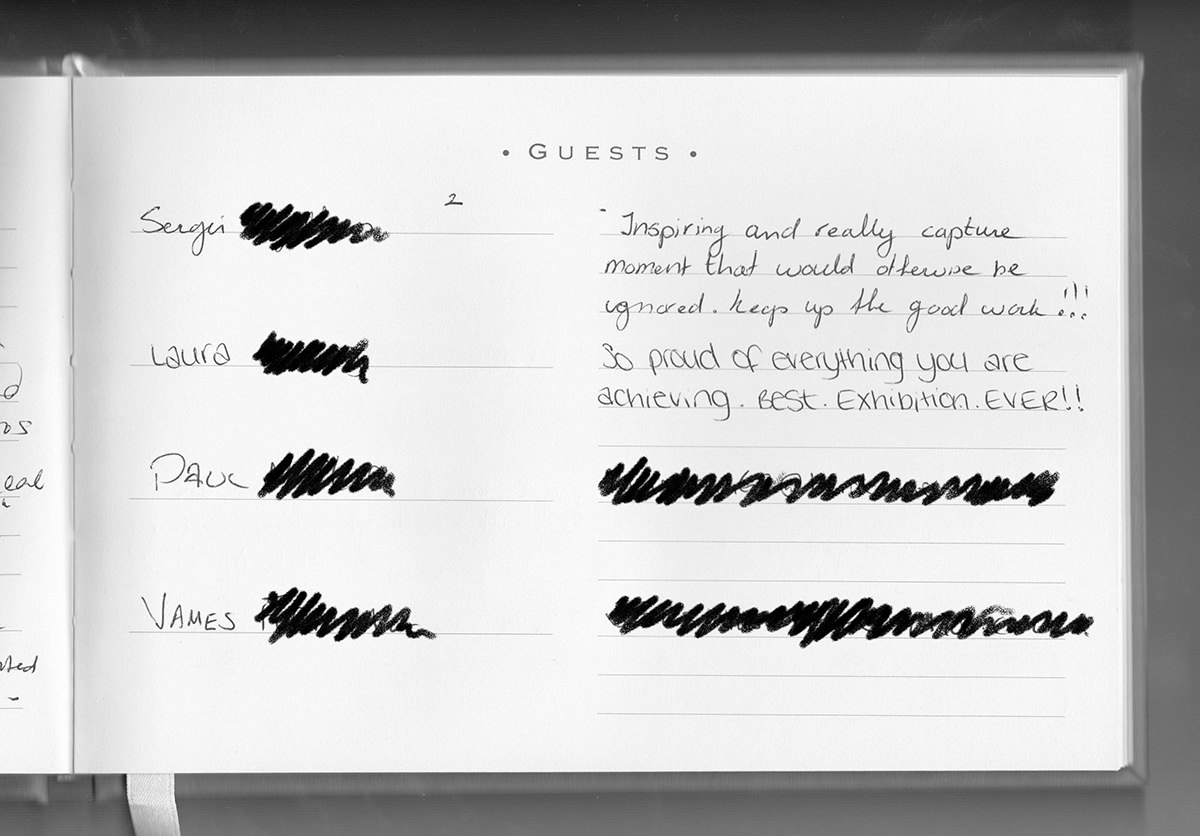 • GUESTS •
2
Sergii
Inspiring and really capture
moment that would otherwise be
ignored. keep up the good work !!!
Laura
So proud of everything you are
achieving. BEST. EXHIBITION. EVER!!
PAUL
VAMES
eal